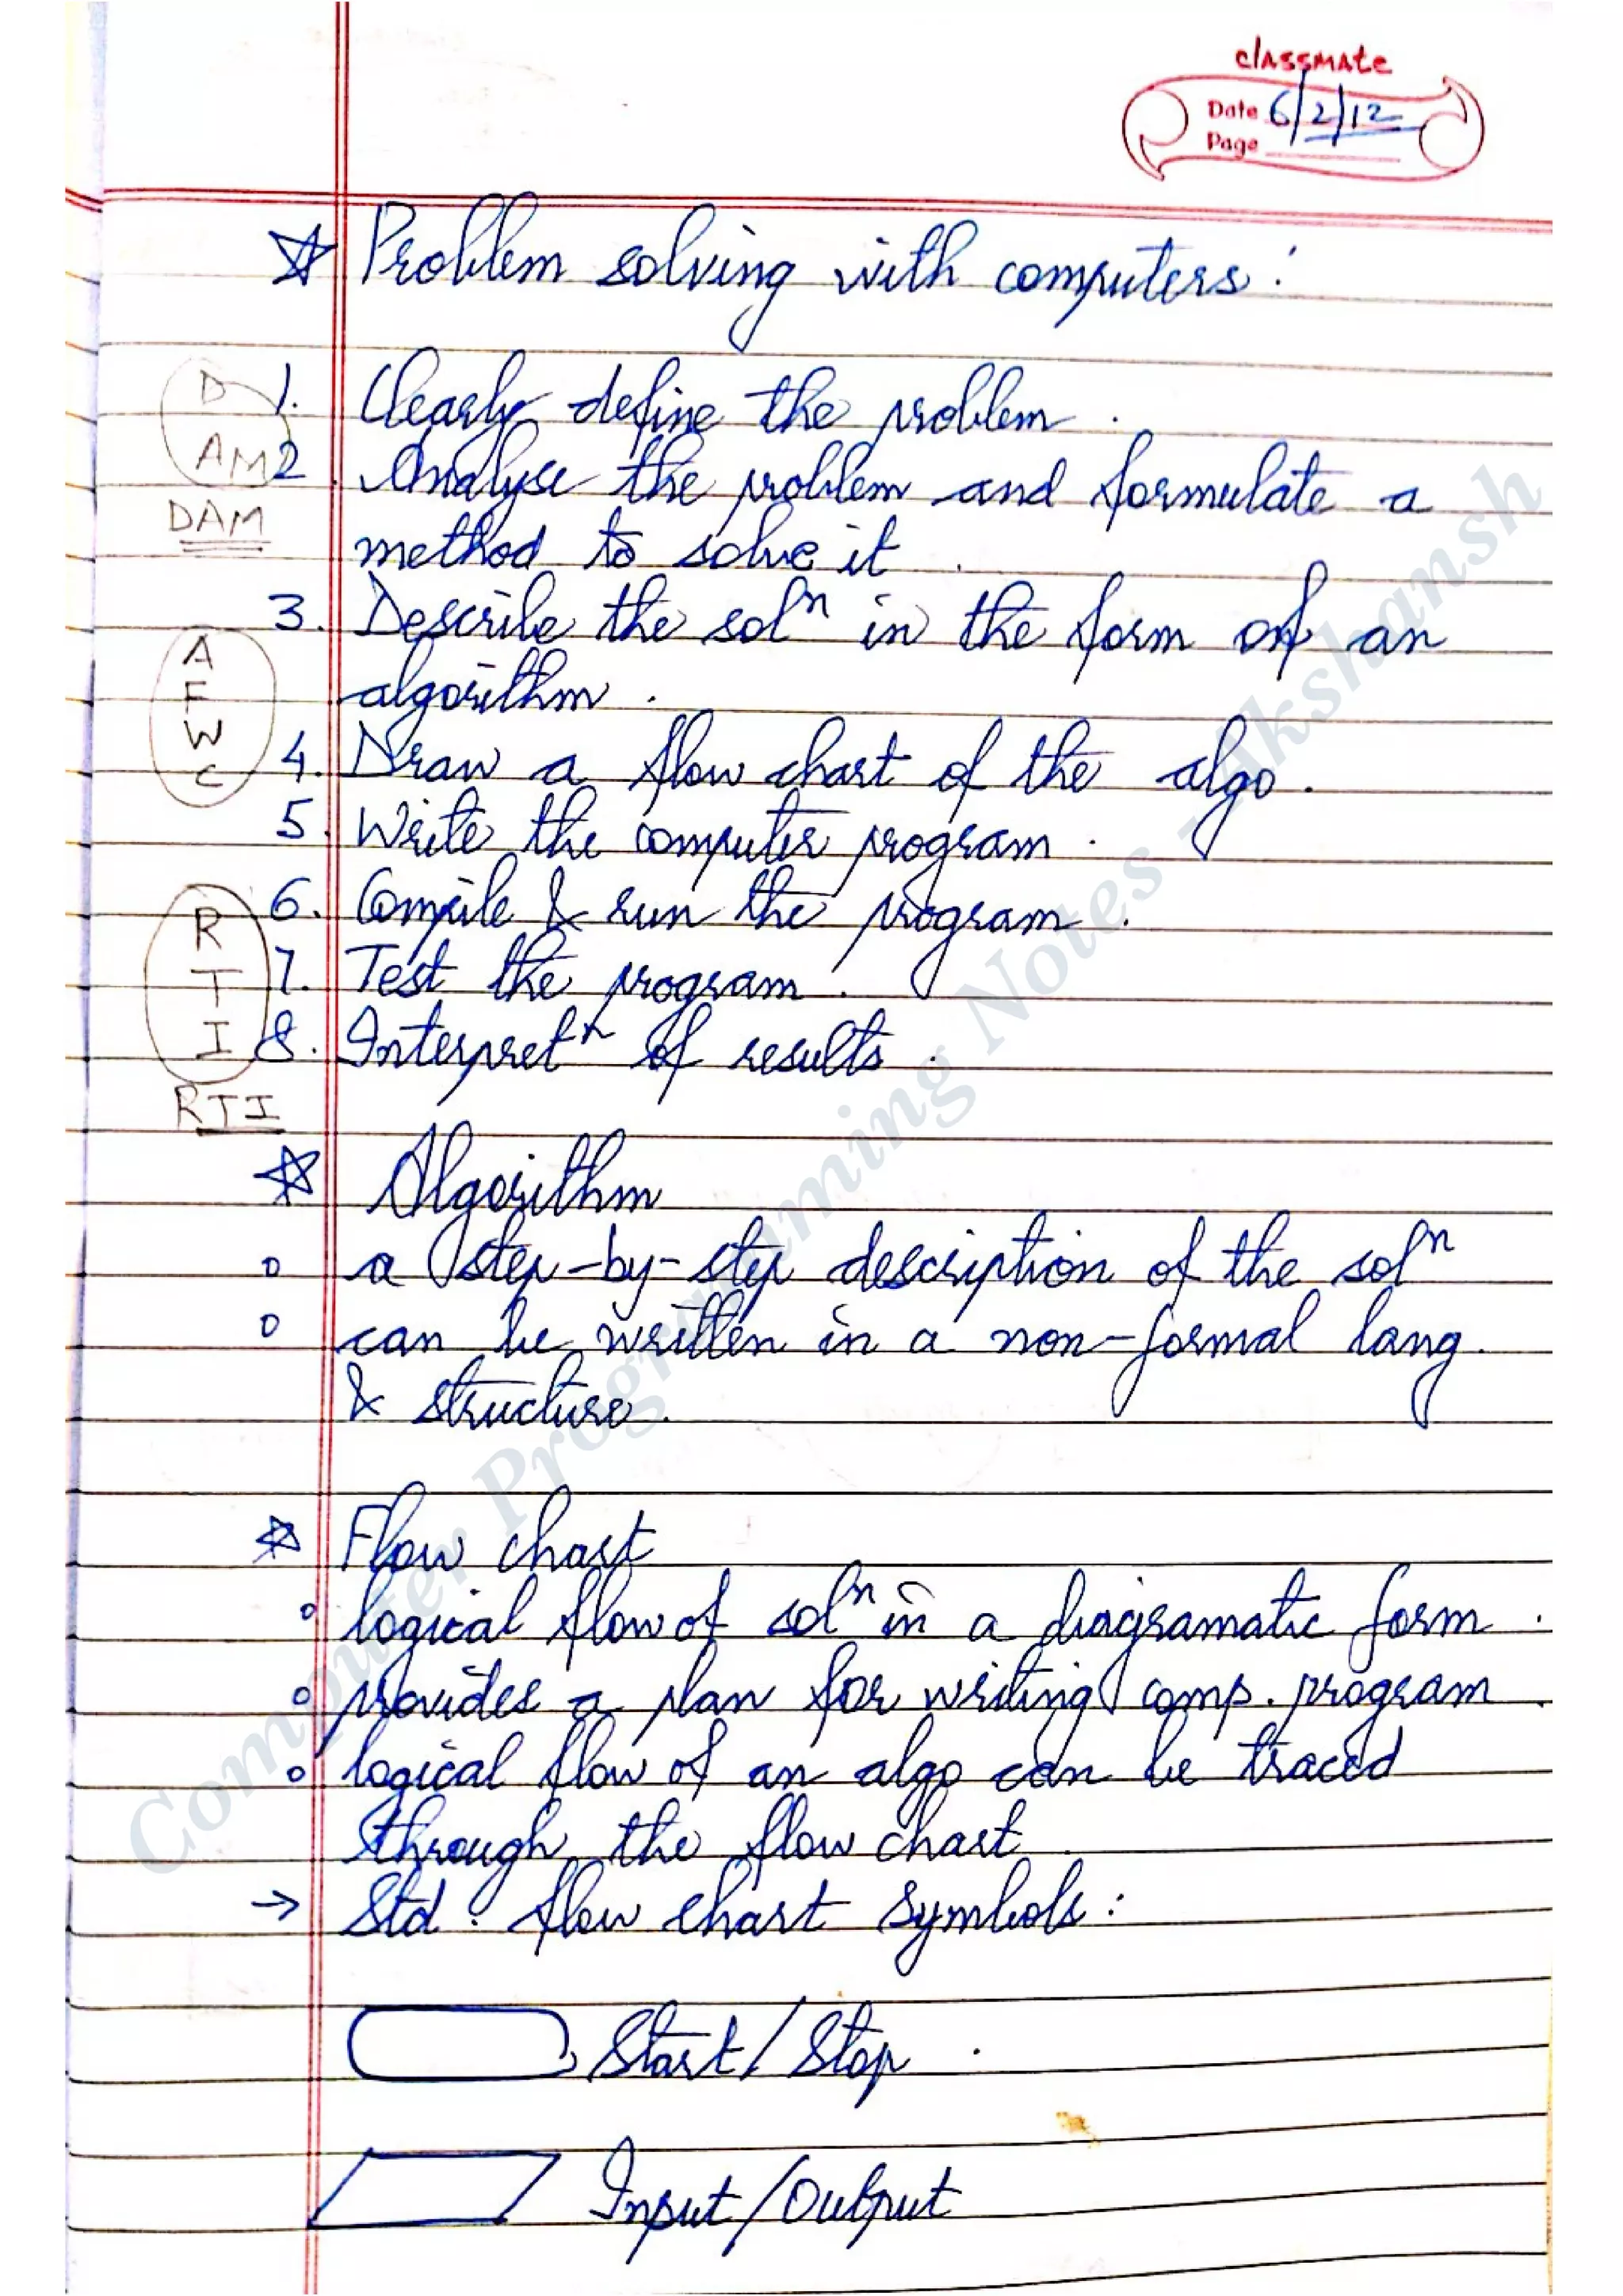 classmate
Date 6/2/12
Page
☆ Problem solving with computers :
D 1. Clearly define the problem .
AM 2. Analyse the problem and formulate a
DAM
method to solve it .
3. Describe the solⁿ in the form of an
A
F
W
C
algorithm .
4. Draw a flow chart of the algo .
5. Write the computer program .
R 6. Compile & run the program .
T 7. Test the program .
I 8. Interpretⁿ of results .
RTI
☆ Algorithm
o a step-by-step description of the solⁿ
o can be written in a non-formal lang.
& structure .
☆ Flow chart
o logical flow of solⁿ in a diagramatic form .
o provides a plan for writing comp. program .
o logical flow of an algo can be traced
through the flow chart .
→ Std . flow chart symbols :
Start / Stop .
Input / Output
Computer Programming Notes - Akshansh